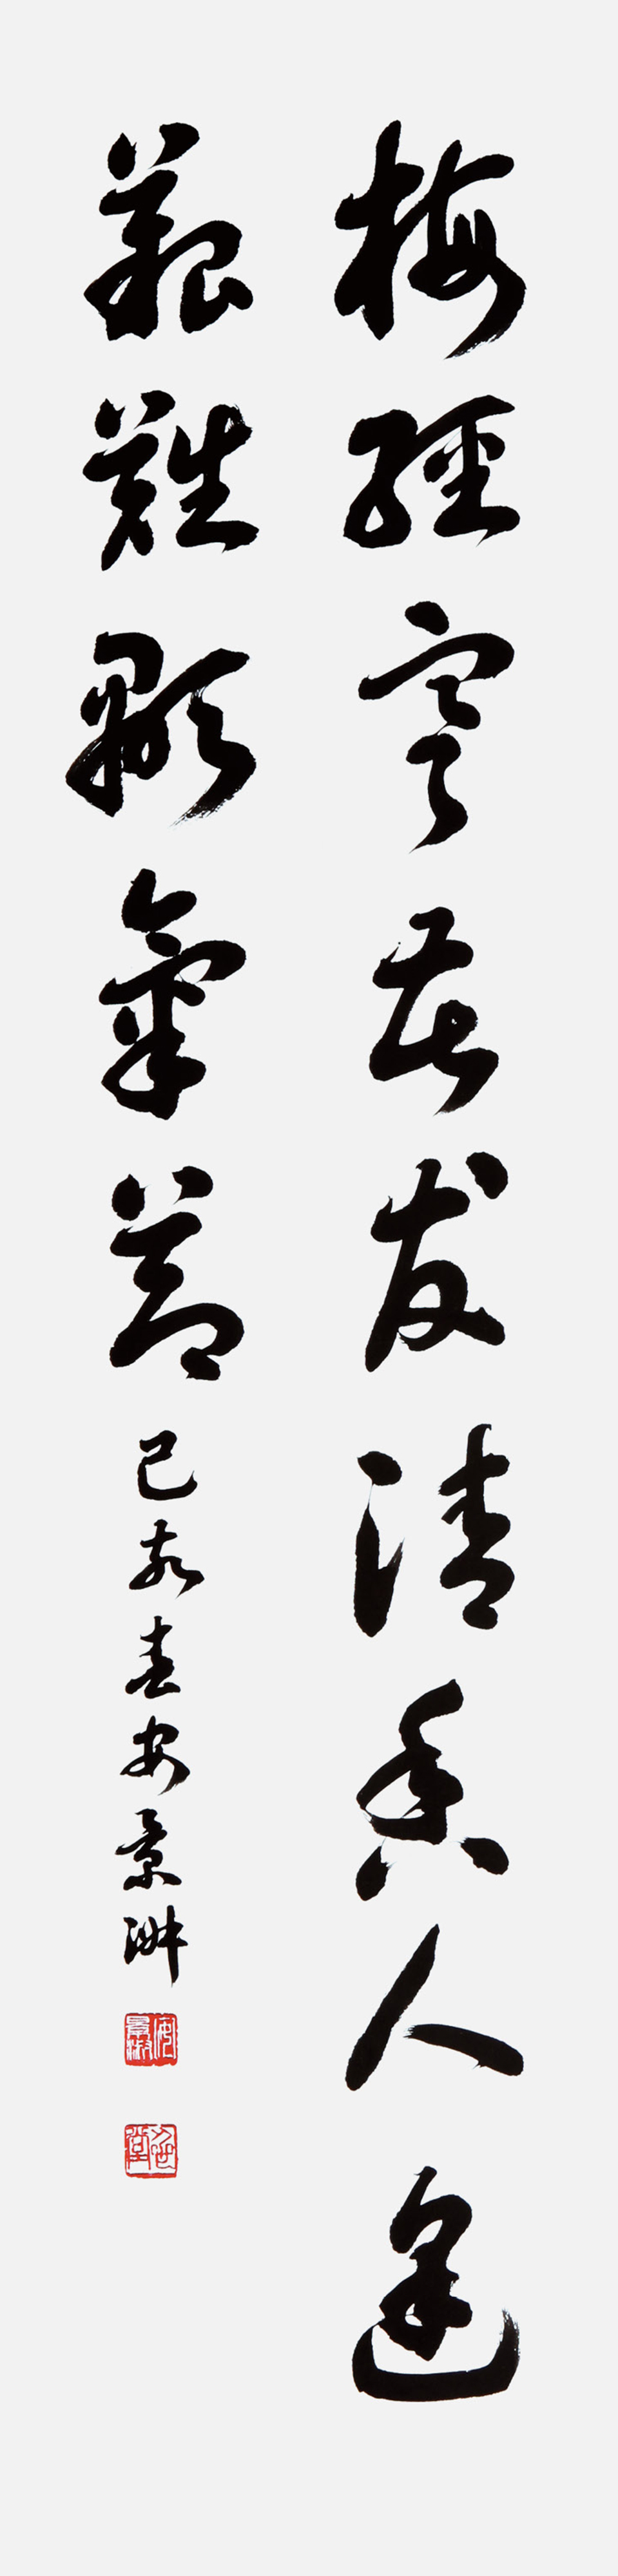 梅經寒苦發清香人逢
艱難顯氣節 己亥春 安景淋